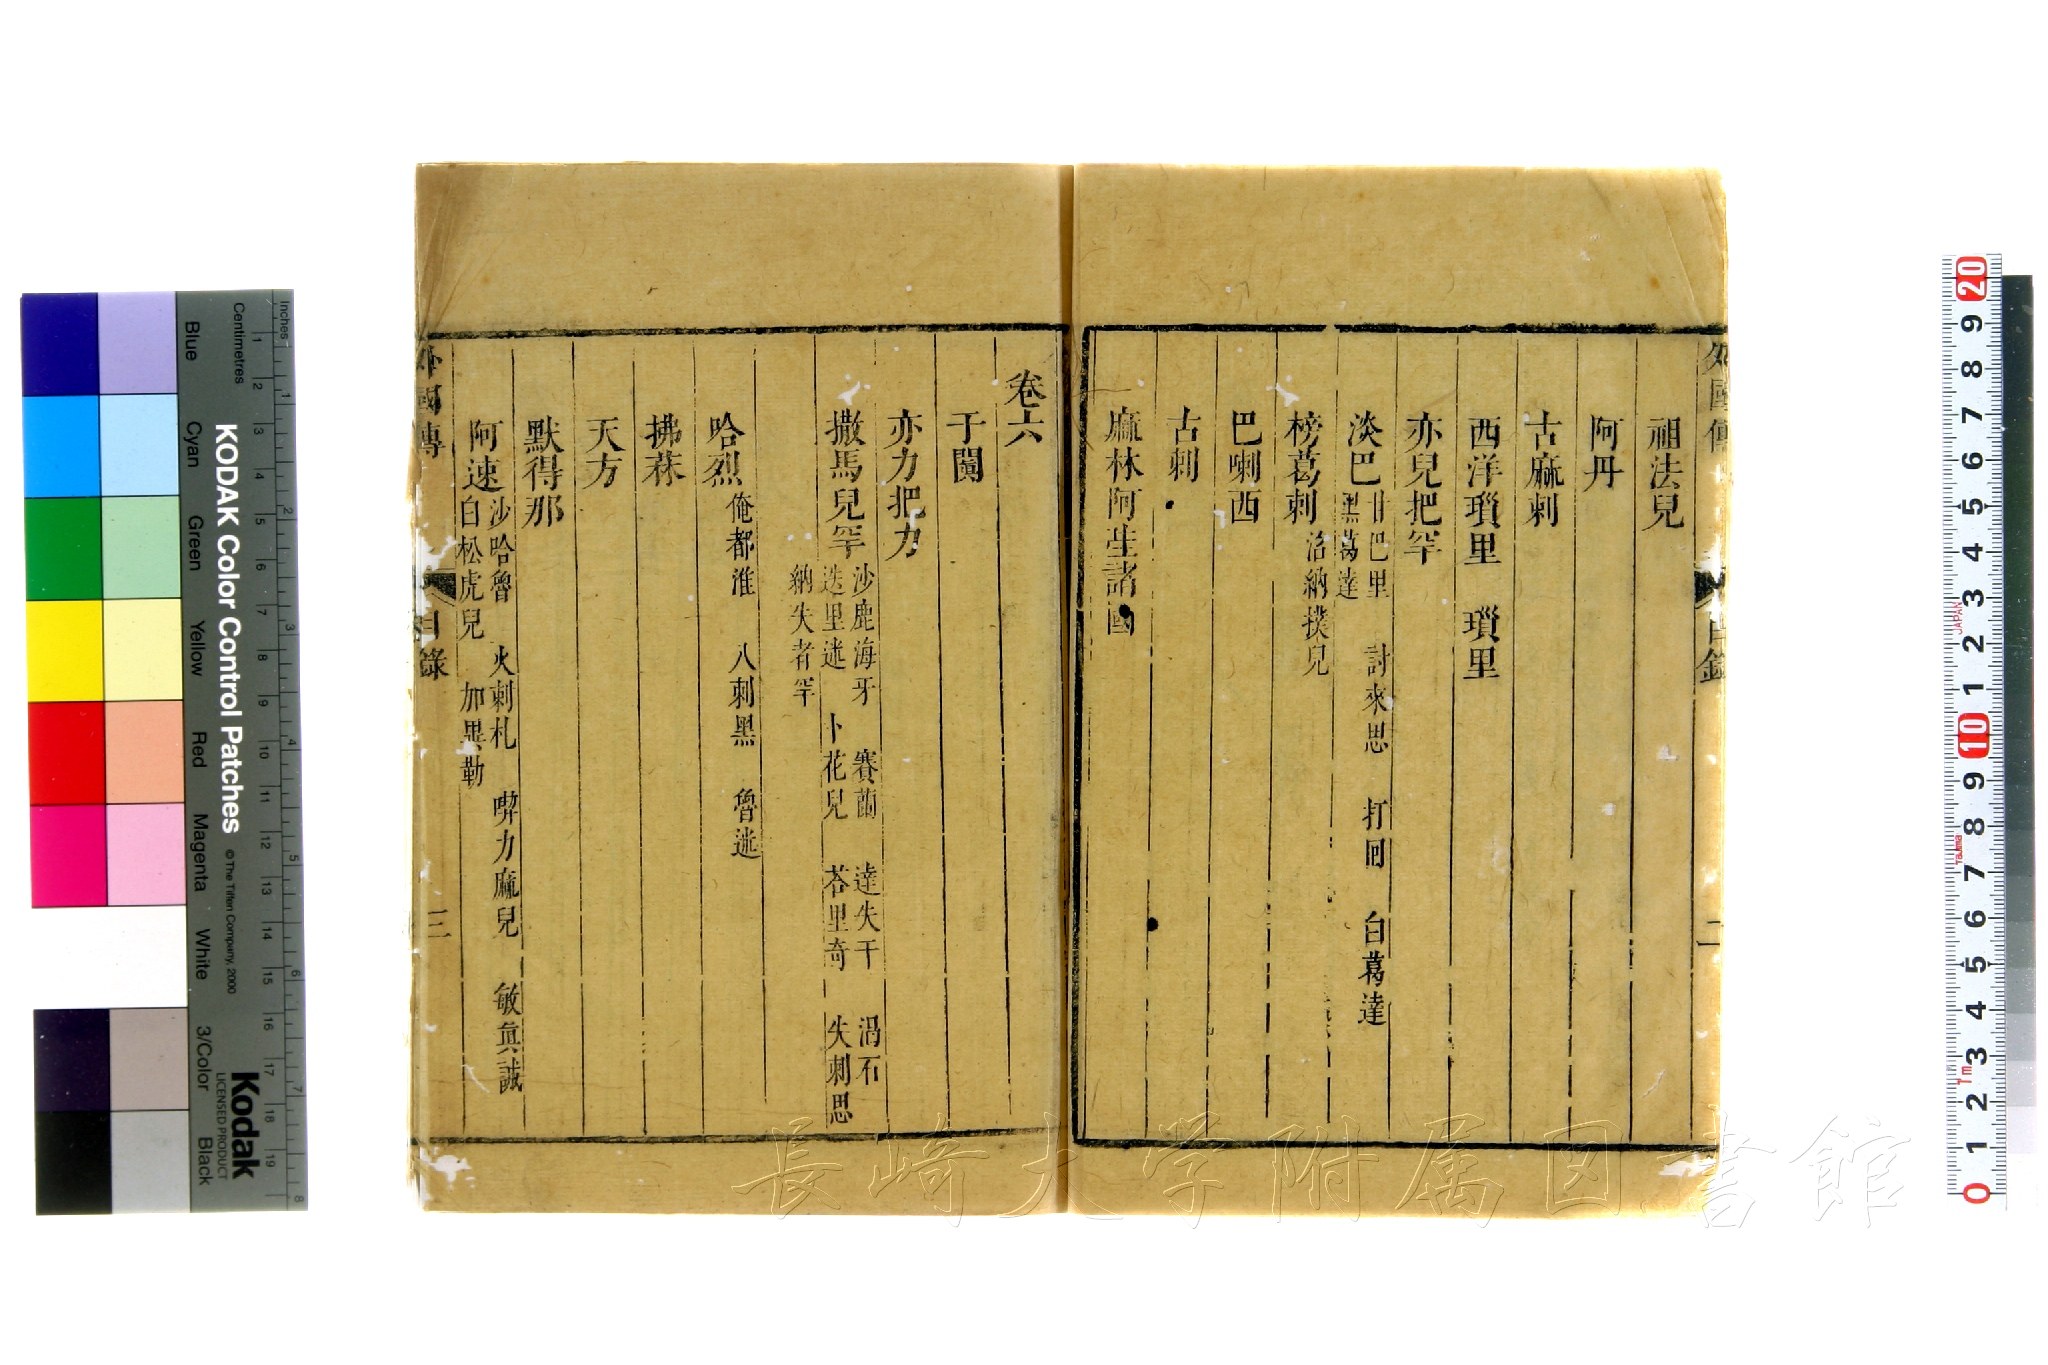 外國傳
目錄
二
祖法兒
阿丹
古麻剌
西洋瑣里　瑣里
亦兒把罕
淡巴 甘巴里　討來思　打回　白葛達
黑葛達
榜葛剌 沼納撲兒
巴喇西
古剌
麻林阿生諸國
卷六
于闐
亦力把力
撒馬兒罕 沙鹿海牙　賽藍　達失干　渴石
迭里迷　卜花兒　荅里奇　失剌思
納失者罕
哈烈 俺都淮　八刺黑　魯迷
拂菻
天方
默得那
阿速 沙哈魯　火剌札　喫力麻兒　敏眞誠
白松虎兒　加異勒
外國傳
目錄
三
長崎大学附属図書館
KODAK Color Control Patches
© The Tiffen Company, 2000
Kodak
LICENSED PRODUCT
Inches
Centimetres
Blue
Cyan
Green
Yellow
Red
Magenta
White
3/Color
Black
1 2 3 4 5 6 7 8 9 10 11 12 13 14 15 16 17 18 19
1 2 3 4 5 6 7 8
20 9 8 7 6 5 4 3 2 1 10 9 8 7 6 5 4 3 2 1 0
JAPAN
Tajima
1m